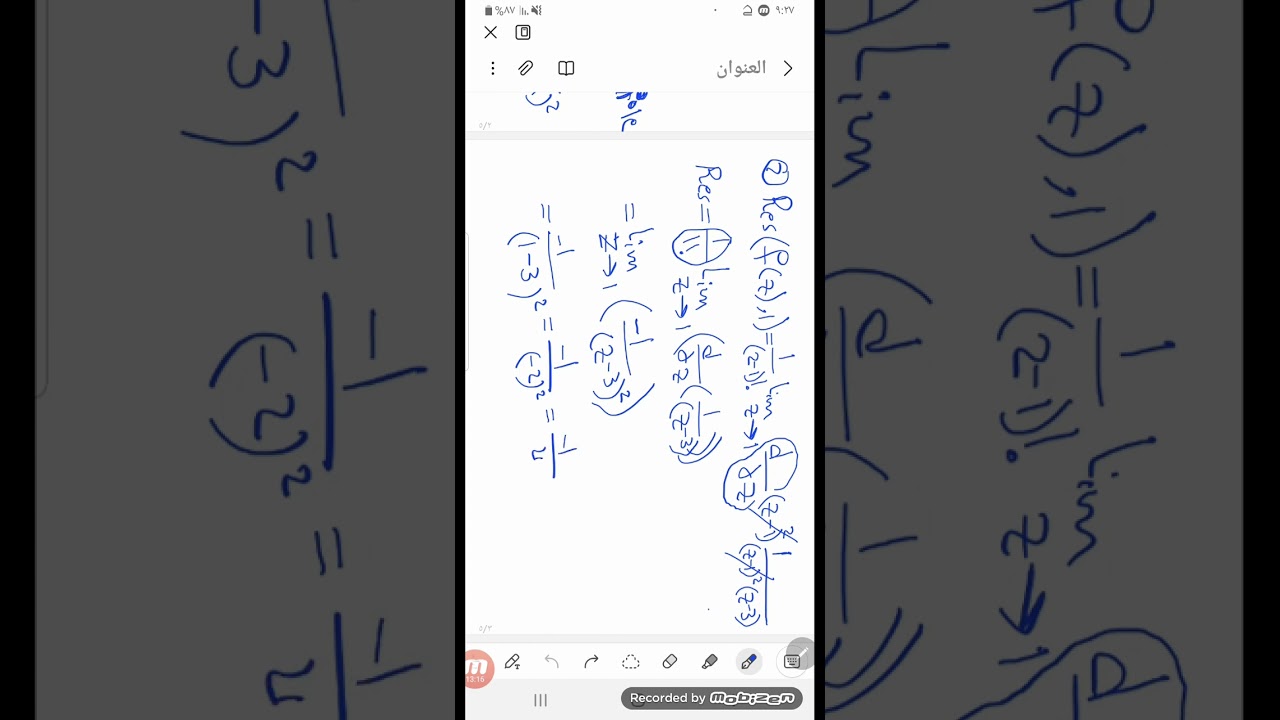 %۸۷
۹:۲۷
العنوان
pole
۵/۲
② Res(f(z),1) = 1/(2-1)! lim z→1 d/dz (z-1)² 1/(z-1)²(z-3)
Res = 1/1! lim z→1 (d/dz (1/(z-3)))
= lim z→1 (-1/(z-3)²)
= -1/(1-3)² = -1/(-2)² = -1/4
۵/۳
13:16
Recorded by mobizen